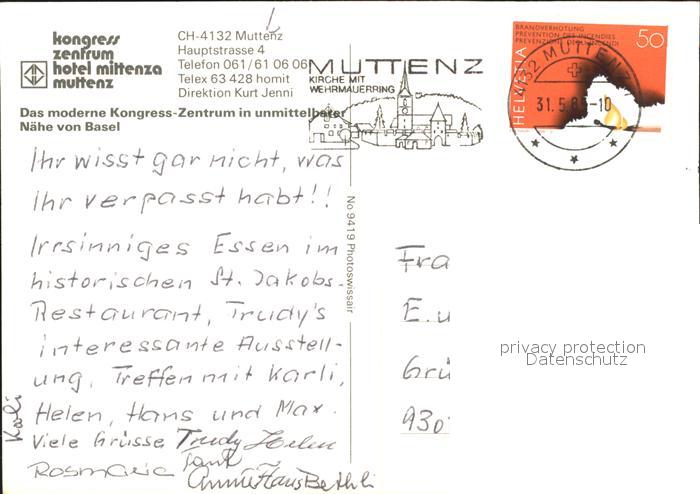 kongress
zentrum
hotel mittenza
muttenz
CH-4132 Muttenz
Hauptstrasse 4
Telefon 061/61 06 06
Telex 63 428 homit
Direktion Kurt Jenni
Das moderne Kongress-Zentrum in unmittelbarer
Nähe von Basel
MUTTENZ
KIRCHE MIT
WEHRMAUERRING
BRANDVERHÜTUNG
PREVENTION DES INCENDIES
PREVENZIONE INCENDI
50
HELVETIA
4132 MUTTENZ
31.5.8 -10
Ihr wisst gar nicht, was
Ihr verpasst habt!!
Irrsinniges Essen im
historischen St. Jakobs-
Restaurant, Trudy's
interessante Ausstell-
ung, Treffen mit Karli,
Helen, Hans und Max.
Viele Grüsse Trudy Helen
Karli
Rosmarie
Annie Hans Bethli
No 9419 Photoswissair
Fra
E. u
Grü
930
privacy protection
Datenschutz